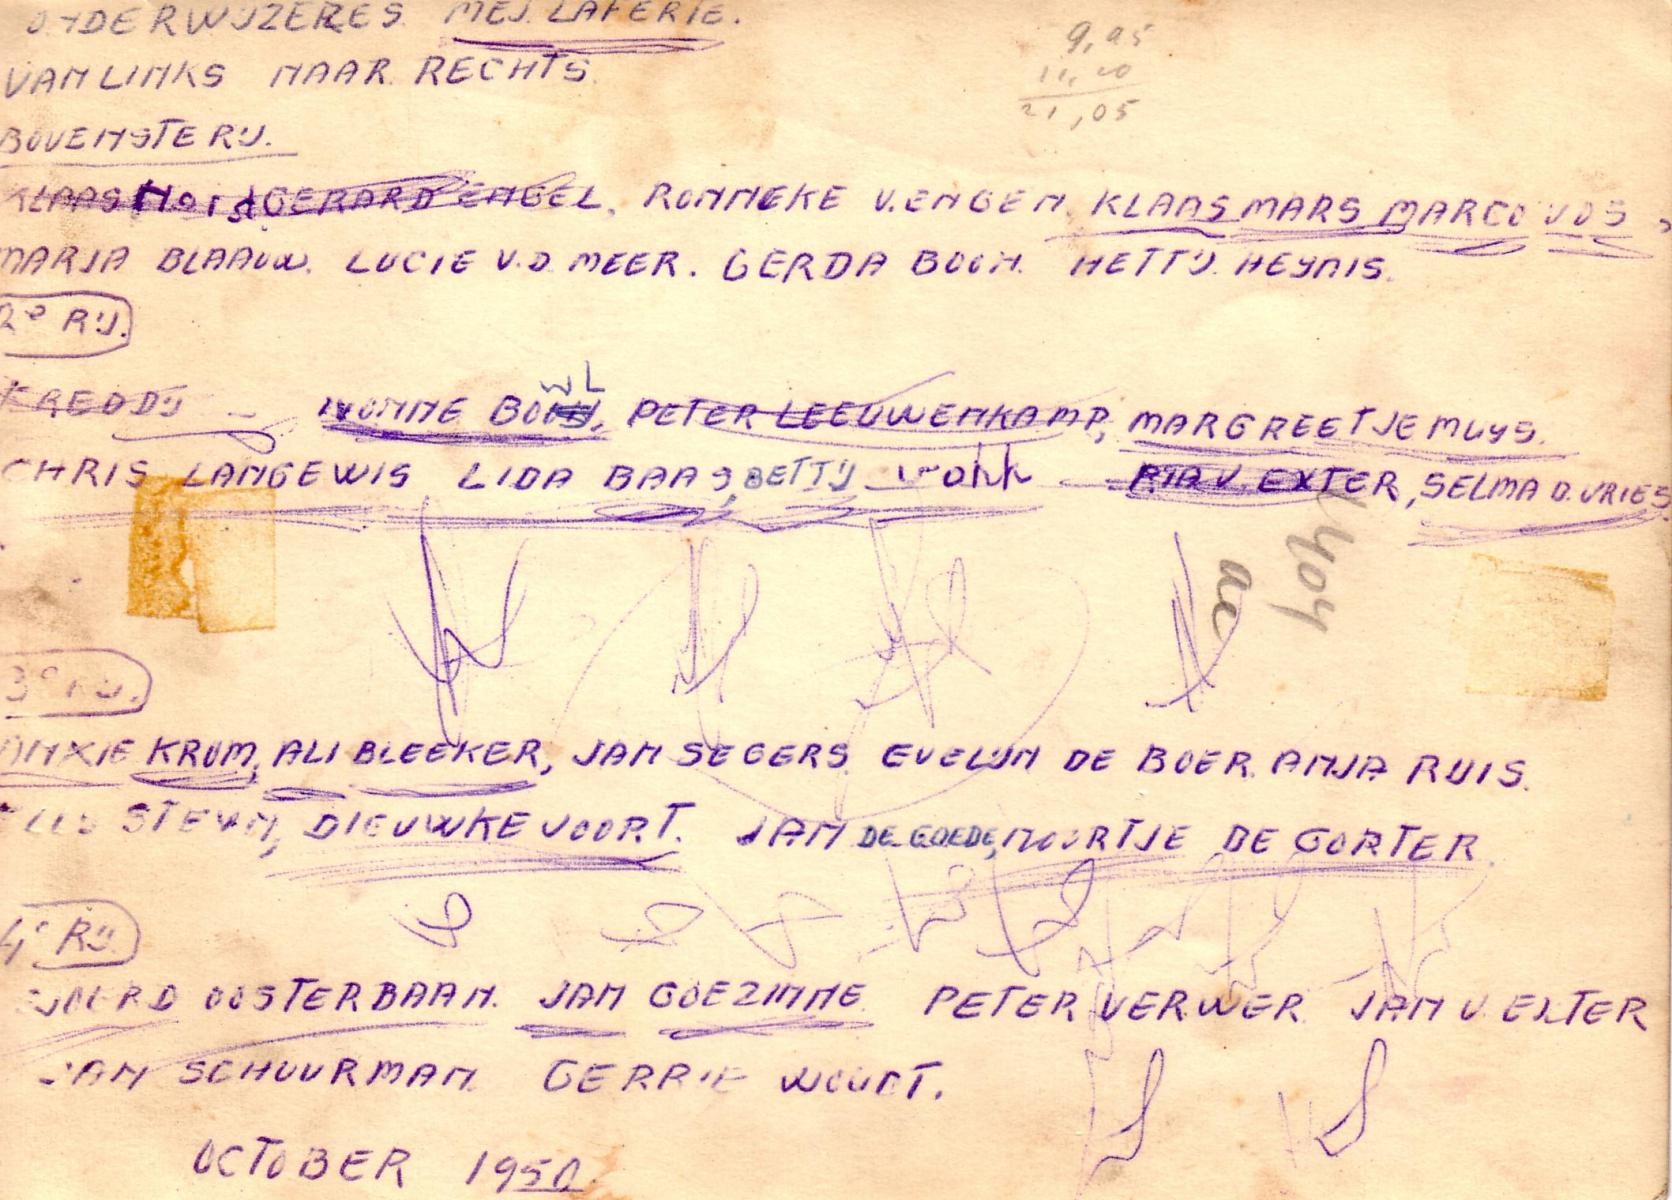 ONDERWIJZERES. MEJ. LAFERTE.
9,95
VAN LINKS NAAR RECHTS.
11,10
21,05
BOVENSTE RIJ.
KLAAS Hoist GERARD ENGEL, RONNEKE V. ENGEN, KLAAS MARS, MARCO VOS,
MARJA BLAAUW. LUCIE V.D. MEER. GERDA BOON. HETTIJ HEYNIS.
2e RIJ.
FREDDIJ — IVONNE BOUWL, PETER LEEUWENKAMP, MARGREETJE MUYS.
CHRIS LANGEWIS LIDA BAAS, BETTIJ — RIA V. EXTER, SELMA D. VRIES.
3e RIJ.
ANXIE KROM, ALI BLEEKER, JAN SEGERS EVELIJN DE BOER. ANJA RUIS.
STEVN, DIEUWKE VOORT. JAN DE GOEDE, NOORTJE DE GORTER
4e RIJ.
SJOERD OOSTERBAAN. JAN GOEZINNE PETER VERWER JAN V. EXTER
JAN SCHUURMAN. GERRIE WOUDT.
OCTOBER 1950.